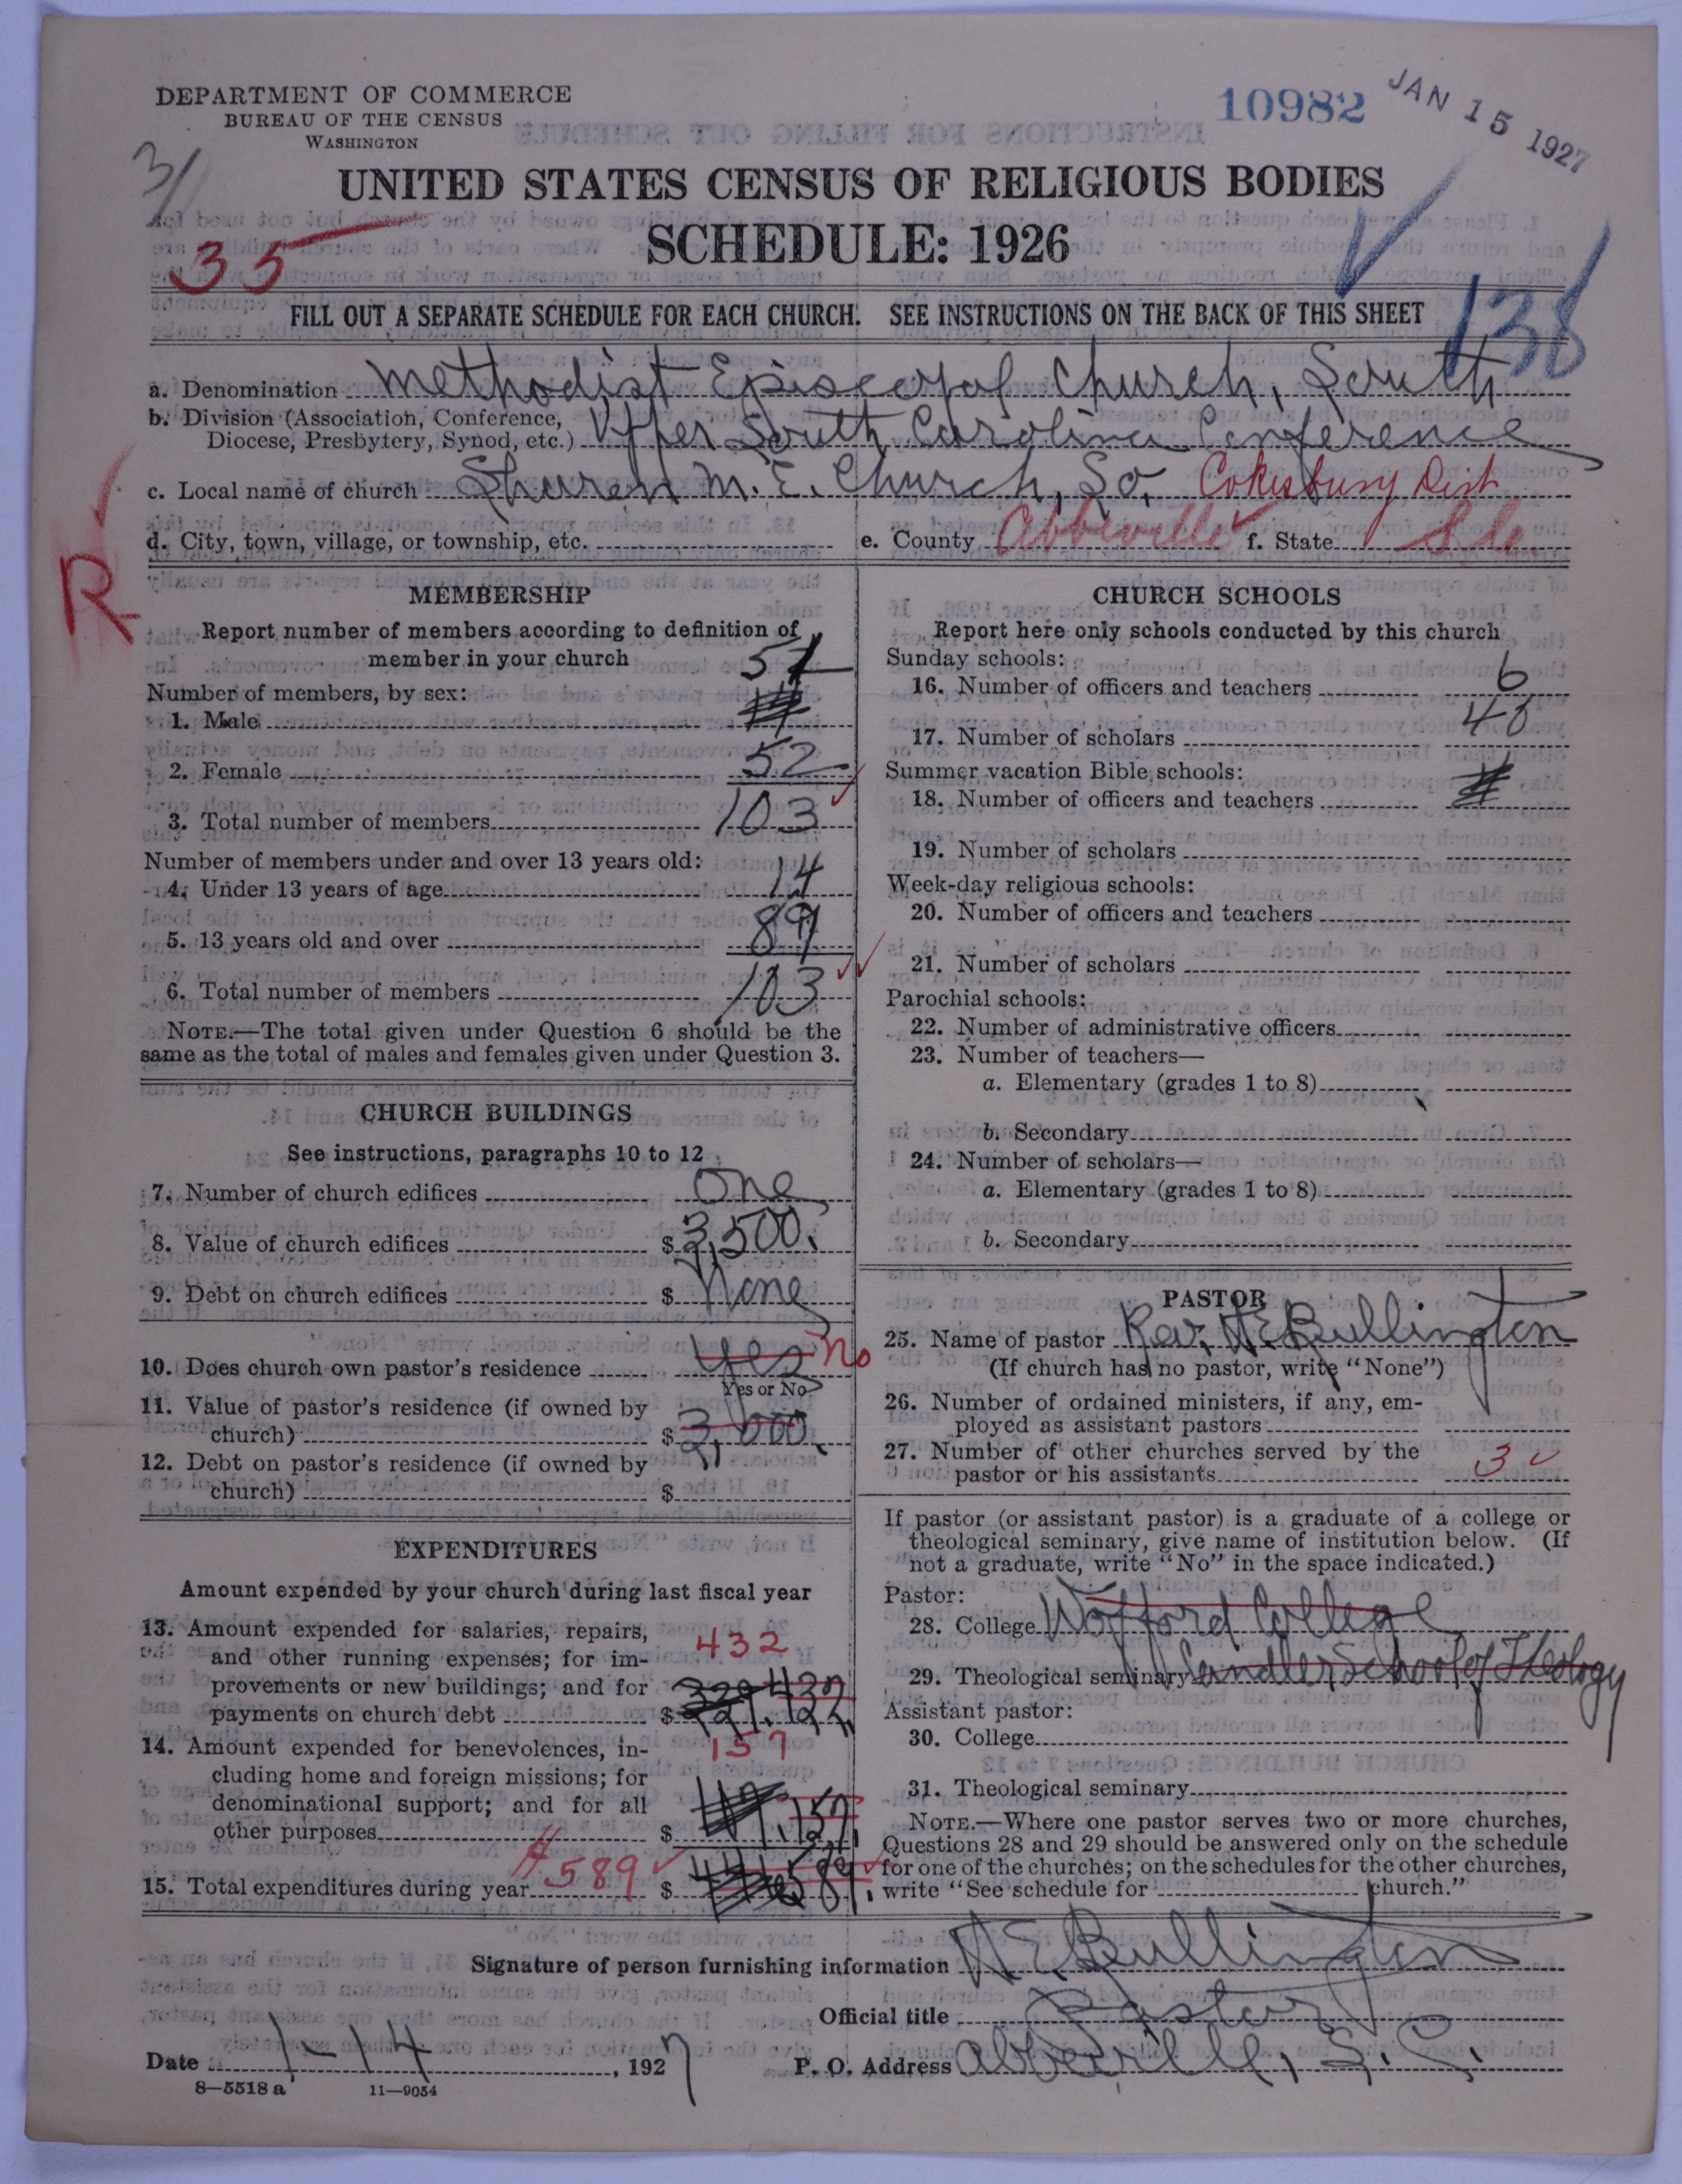 DEPARTMENT OF COMMERCE
BUREAU OF THE CENSUS
WASHINGTON
10982
JAN 15 1927
31
35
UNITED STATES CENSUS OF RELIGIOUS BODIES
SCHEDULE: 1926
138
FILL OUT A SEPARATE SCHEDULE FOR EACH CHURCH. SEE INSTRUCTIONS ON THE BACK OF THIS SHEET
a. Denomination Methodist Episcopal Church, South
b. Division (Association, Conference,
Diocese, Presbytery, Synod, etc.) Upper South Carolina Conference
c. Local name of church Sharon M. E. Church, So. Cokesbury Dist
d. City, town, village, or township, etc. e. County Abbeville f. State S.C.
R
MEMBERSHIP
Report number of members according to definition of
member in your church
Number of members, by sex:
1. Male 51
2. Female 52
3. Total number of members 103
Number of members under and over 13 years old:
4. Under 13 years of age 14
5. 13 years old and over 89
6. Total number of members 103
NOTE.—The total given under Question 6 should be the
same as the total of males and females given under Question 3.
CHURCH BUILDINGS
See instructions, paragraphs 10 to 12
7. Number of church edifices One
8. Value of church edifices $ 3,500.
9. Debt on church edifices $ None
10. Does church own pastor's residence Yes No
Yes or No
11. Value of pastor's residence (if owned by
church) $ 3,000.
12. Debt on pastor's residence (if owned by
church) $
EXPENDITURES
Amount expended by your church during last fiscal year
13. Amount expended for salaries, repairs,
and other running expenses; for im-
provements or new buildings; and for
payments on church debt $ 432
432
14. Amount expended for benevolences, in-
cluding home and foreign missions; for
denominational support; and for all
other purposes $ 157
157
15. Total expenditures during year 589 $ 589
CHURCH SCHOOLS
Report here only schools conducted by this church
Sunday schools:
16. Number of officers and teachers 6
17. Number of scholars
Summer vacation Bible schools:
18. Number of officers and teachers
19. Number of scholars
Week-day religious schools:
20. Number of officers and teachers
21. Number of scholars
Parochial schools:
22. Number of administrative officers
23. Number of teachers—
a. Elementary (grades 1 to 8)
b. Secondary
24. Number of scholars—
a. Elementary (grades 1 to 8)
b. Secondary
PASTOR
25. Name of pastor Rev. H E Bullington
(If church has no pastor, write "None")
26. Number of ordained ministers, if any, em-
ployed as assistant pastors
27. Number of other churches served by the
pastor or his assistants 3
If pastor (or assistant pastor) is a graduate of a college or
theological seminary, give name of institution below. (If
not a graduate, write "No" in the space indicated.)
Pastor:
28. College Wofford College
29. Theological seminary Candler School of Theology
Assistant pastor:
30. College
31. Theological seminary
NOTE.—Where one pastor serves two or more churches,
Questions 28 and 29 should be answered only on the schedule
for one of the churches; on the schedules for the other churches,
write "See schedule for church."
Signature of person furnishing information H E Bullington
Official title Pastor
Date 1-14, 1927 P. O. Address Abbeville, S. C.
8—5518 a 11—9054